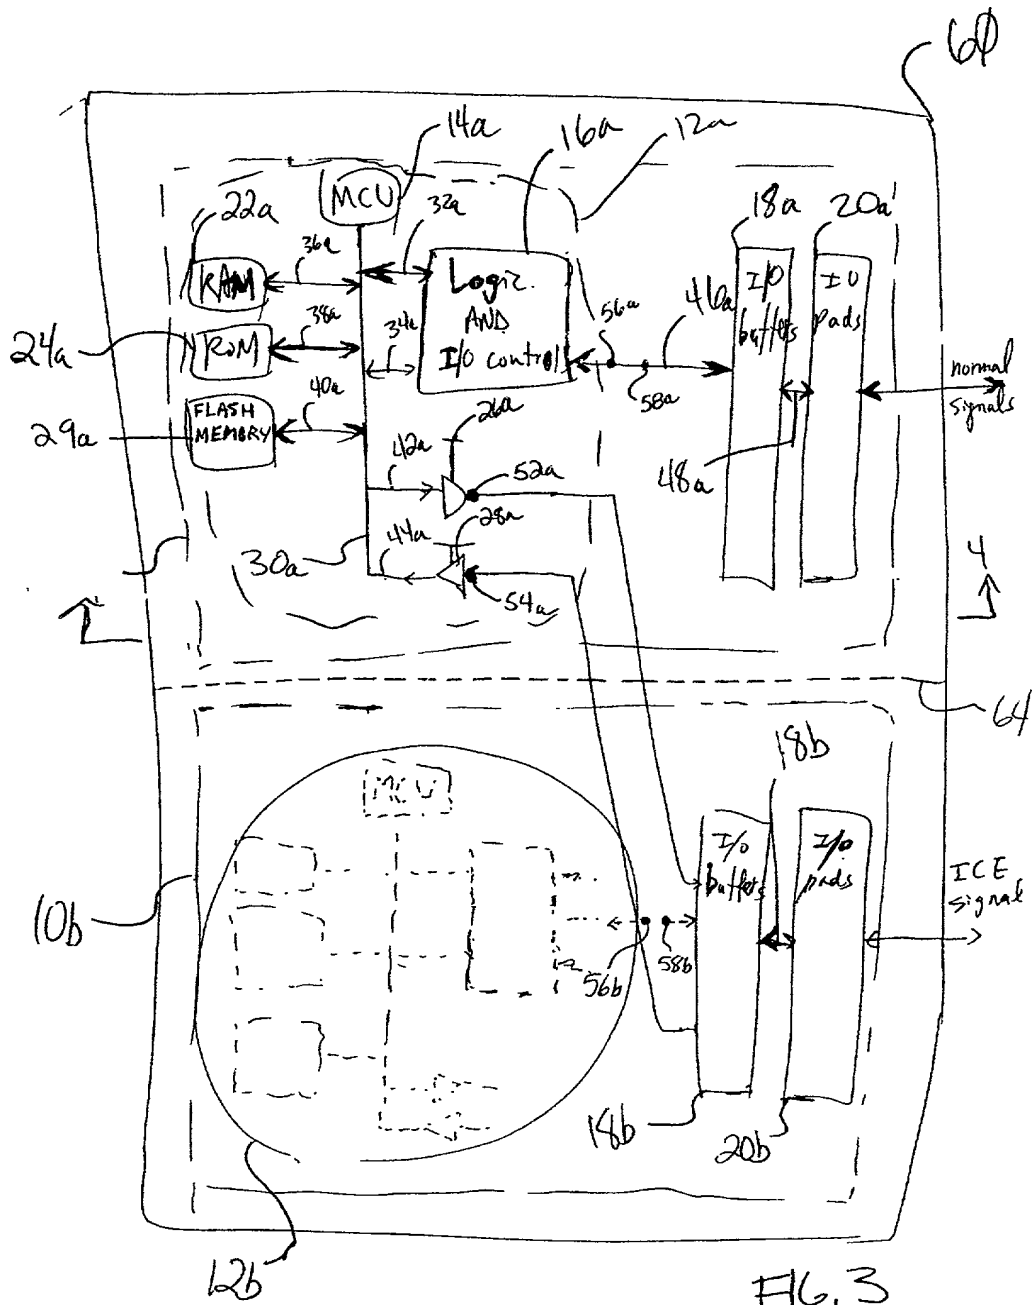 60
14a
16a
12a
MCU
22a
32a
18a
20a
36a
RAM
Logic
AND
I/O control
I/O
buffers
I/O
pads
24a
ROM
38a
34a
56a
46a
58a
normal
signals
29a
FLASH
MEMORY
40a
26a
42a
52a
48a
28a
44a
30a
54a
4
64
18b
MCU
I/O
buffers
I/O
pads
ICE
signal
10b
56b
58b
18b
20b
12b
FIG. 3